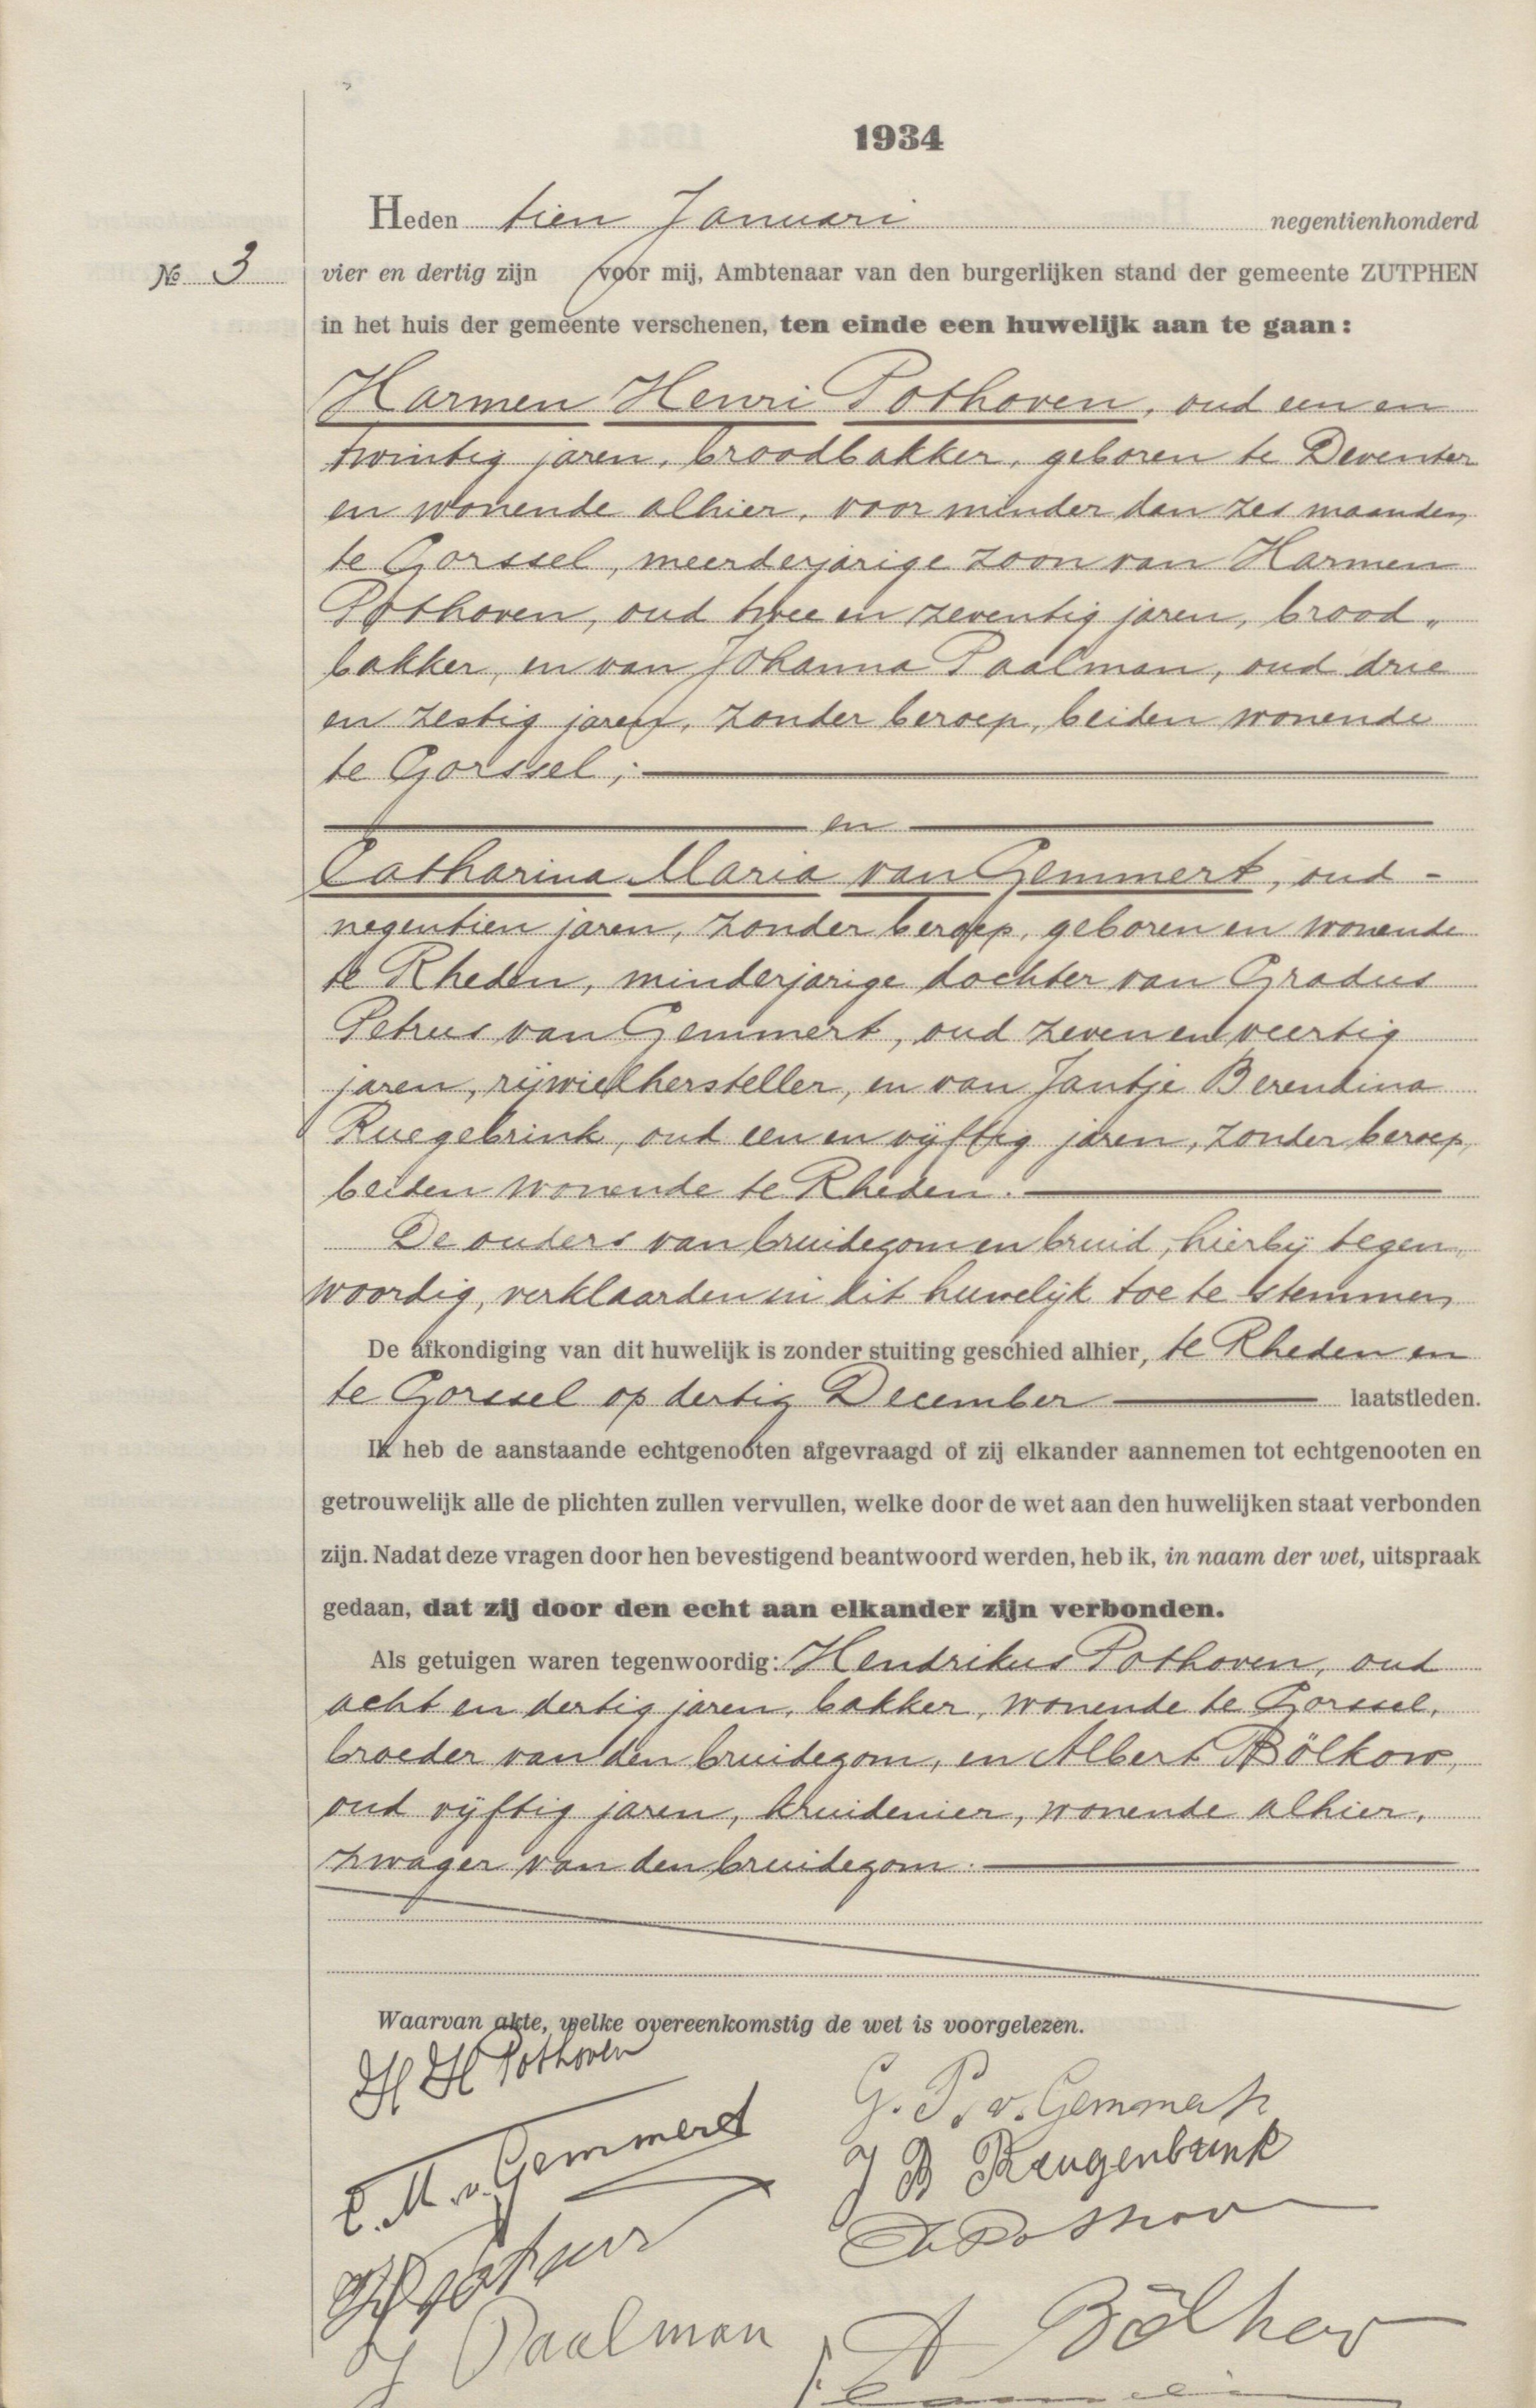 1934
Heden tien Januari negentienhonderd
№ 3
vier en dertig zijn voor mij, Ambtenaar van den burgerlijken stand der gemeente ZUTPHEN
in het huis der gemeente verschenen, ten einde een huwelijk aan te gaan:
Harmen Henri Pothoven, oud een en
twintig jaren, broodbakker, geboren te Deventer
en wonende alhier, voor minder dan zes maanden
te Gorssel, meerderjarige zoon van Harmen
Pothoven, oud twee en zeventig jaren, brood„
bakker, en van Johanna Paalman, oud drie
en zestig jaren, zonder beroep, beiden wonende
te Gorssel;
en
Catharina Maria van Gemmert, oud -
negentien jaren, zonder beroep, geboren en wonende
te Rheden, minderjarige dochter van Gradus
Petrus van Gemmert, oud zeven en veertig
jaren, rijwielhersteller, en van Jantje Berendina
Ruegebrink, oud een en vijftig jaren, zonder beroep,
beiden wonende te Rheden.
De ouders van bruidegom en bruid, hierbij tegen„
woordig, verklaarden in dit huwelijk toe te stemmen
De afkondiging van dit huwelijk is zonder stuiting geschied alhier, te Rheden en
te Gorssel op dertig December laatstleden.
Ik heb de aanstaande echtgenooten afgevraagd of zij elkander aannemen tot echtgenooten en
getrouwelijk alle de plichten zullen vervullen, welke door de wet aan den huwelijken staat verbonden
zijn. Nadat deze vragen door hen bevestigend beantwoord werden, heb ik, in naam der wet, uitspraak
gedaan, dat zij door den echt aan elkander zijn verbonden.
Als getuigen waren tegenwoordig: Hendrikus Pothoven, oud
acht en dertig jaren, bakker, wonende te Gorssel,
broeder van den bruidegom, en Albert Bölkow,
oud vijftig jaren, kruidenier, wonende alhier,
zwager van den bruidegom.
Waarvan akte, welke overeenkomstig de wet is voorgelezen.
H H Pothoven
G. P. v. Gemmert
C. M. v. Gemmert
J B Reugenbrink
J Paalman
A Bölkow